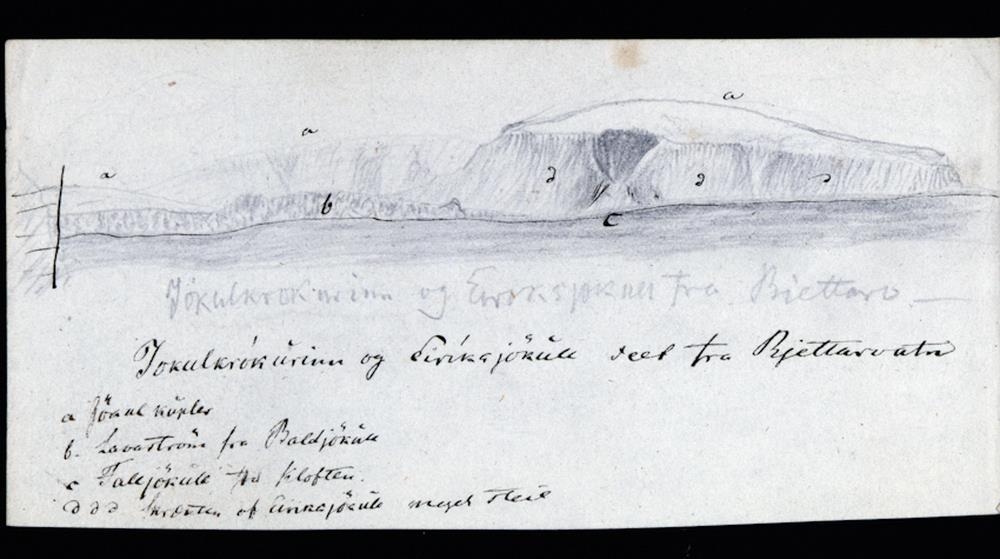 a
a
a
b
d
d
d
c
Jökulkrókurinn og Eiriksjökull fra Rjettarv
Jökulkrókurinn og Eiríksjökull seet fra Rjettarvatn
a Jökul kupler
b. Lavaström fra Baldjökull
c Falljökull fra Kloften.
d d d Skrænten af Eiriksjökull meget steil